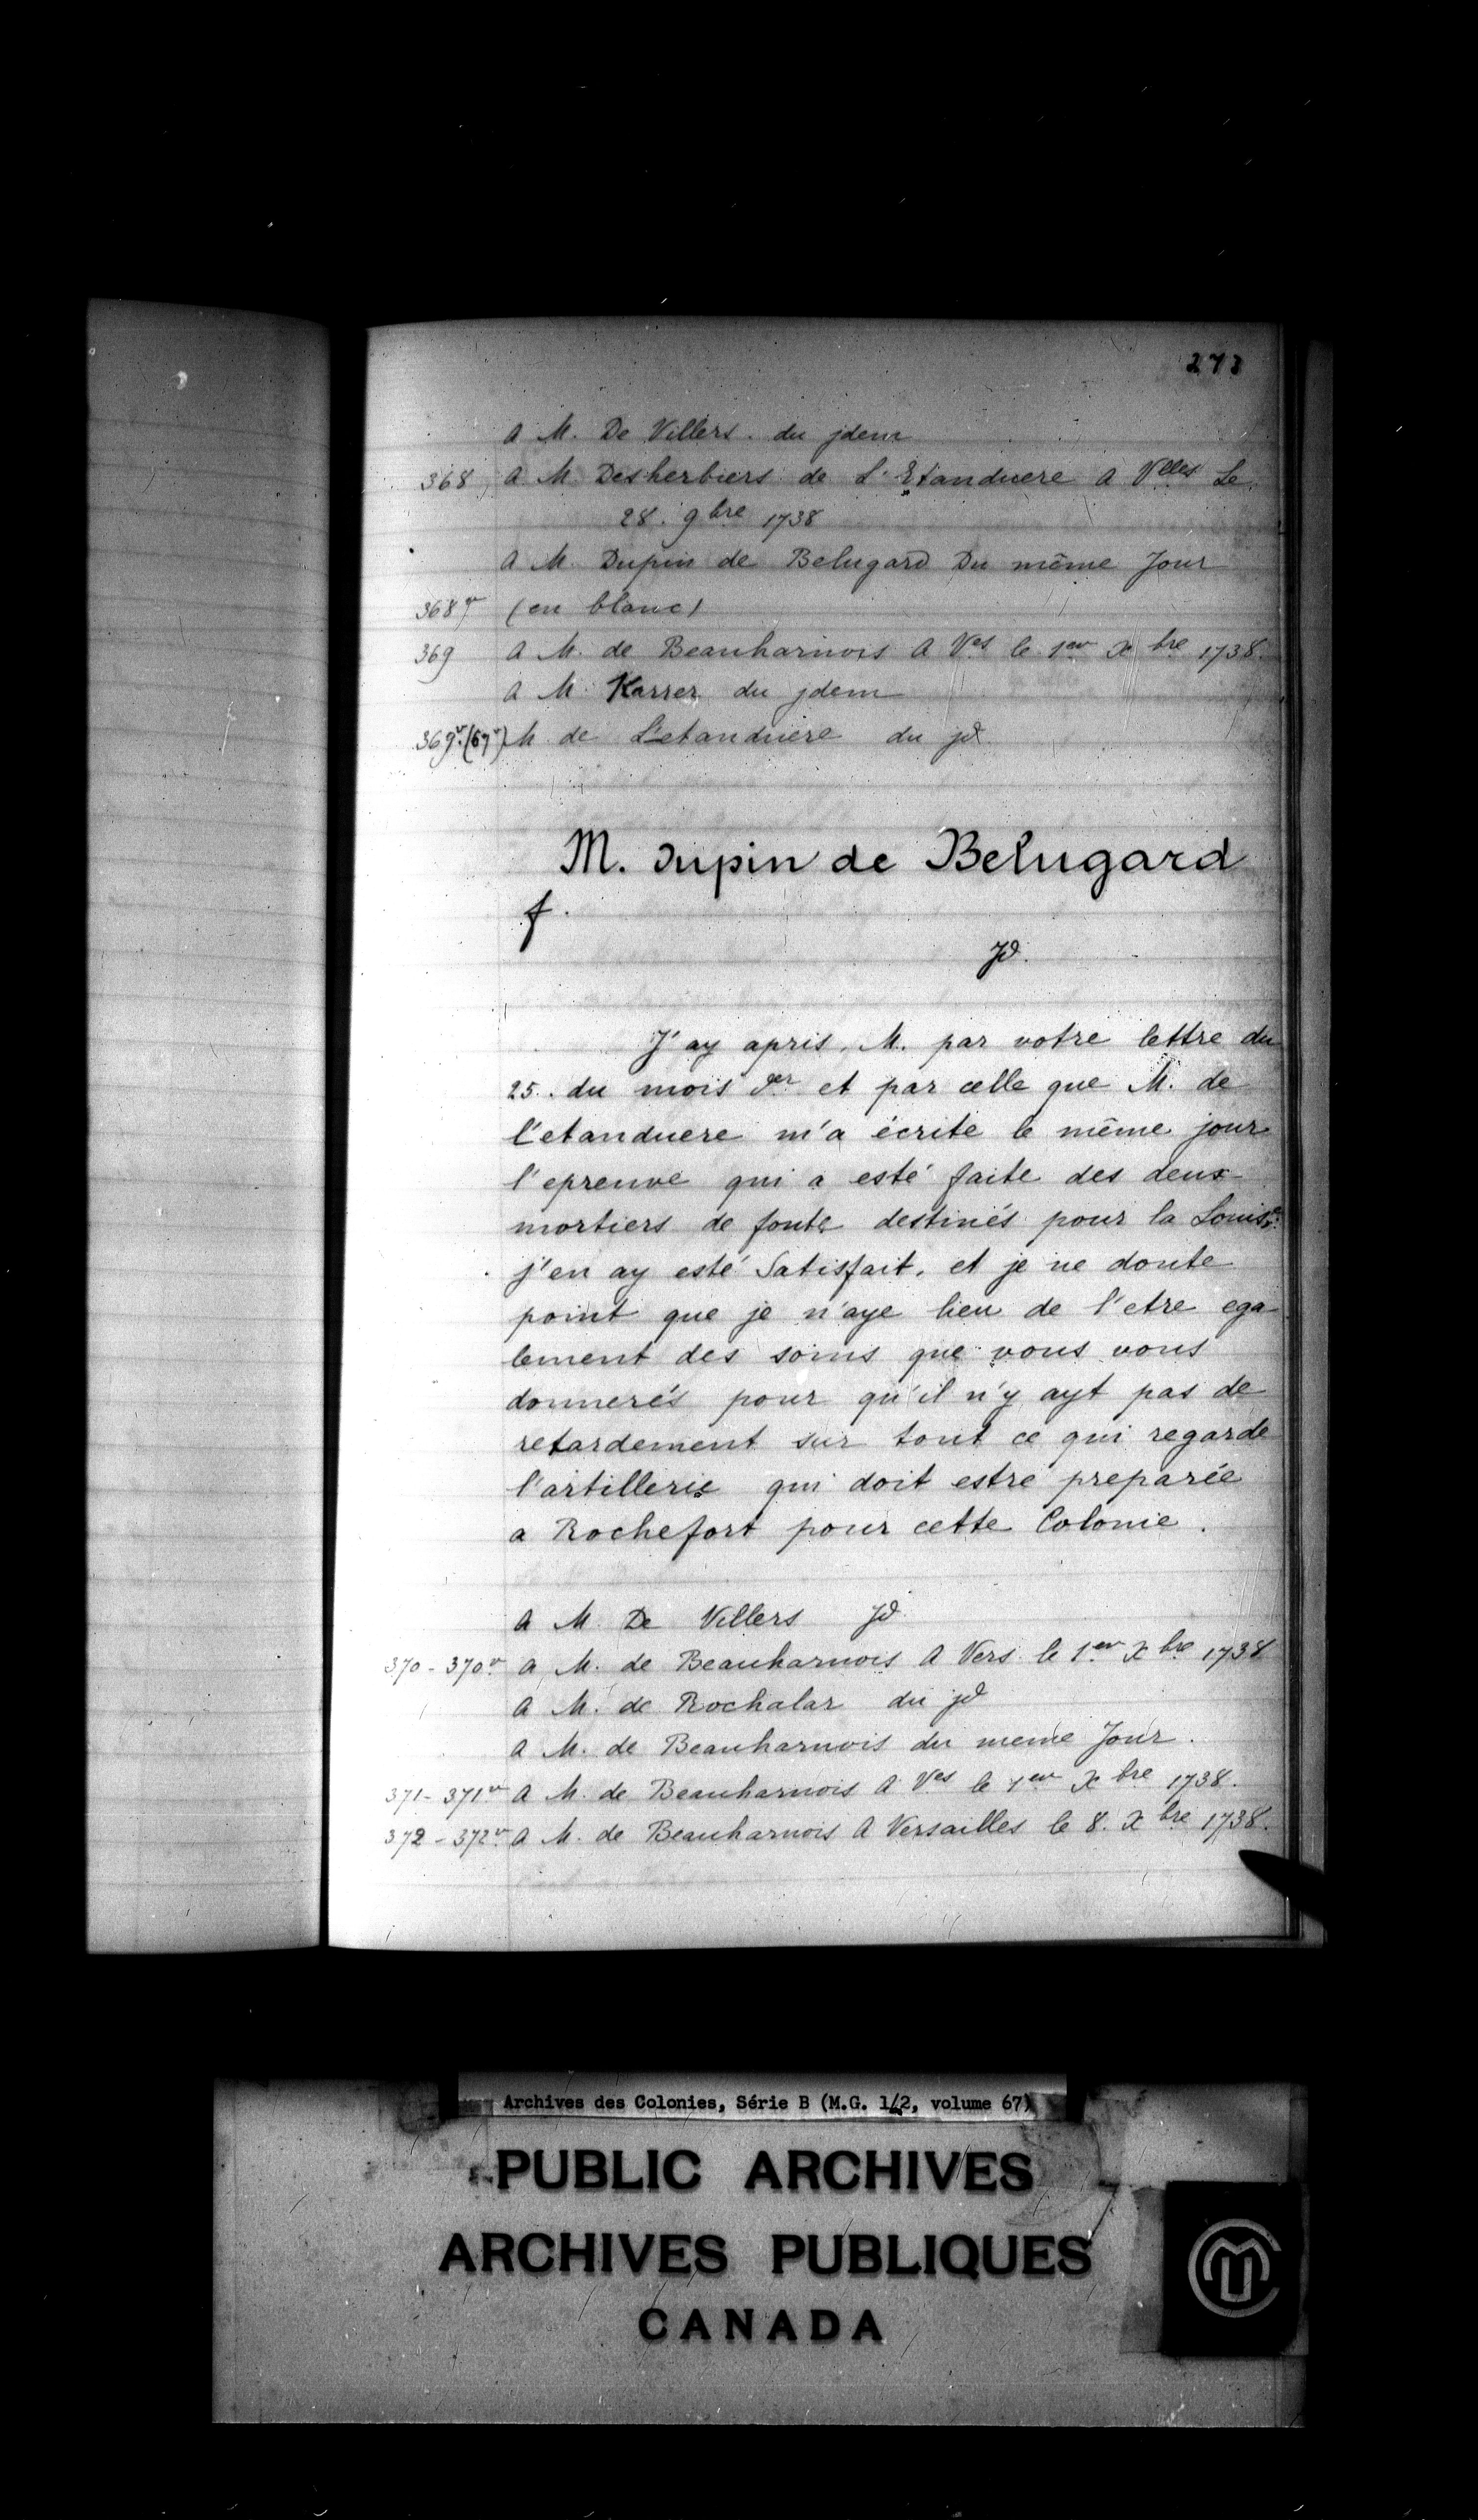 273
A M. De Villers. du jdem
368 A M. Desherbiers de L'Etanduere A Vlles Le
28. 9bre 1738
A M. Dupin de Belugard Du même Jour
368 v (en blanc)
369 A M. de Beauharnois A Ves le 1er Xbre 1738.
A M. Karrer du jdem
369v. (67v) M. de L'etanduere du jd.
M. Dupin de Belugard
f.
Jd.
J'ay apris, M. par votre lettre du
25. du mois der et par celle que M. de
l'etanduere m'a écrite le même jour
l'epreuve qui a esté faite des deux
mortiers de fonte destinés pour la Louisne.
j'en ay esté Satisfait, et je ne doute
point que je n'aye lieu de l'etre ega-
lement des soins que vous vous
donnerés pour qu'il n'y ayt pas de
retardement sur tout ce qui regarde
l'artillerie qui doit estre preparée
a Rochefort pour cette Colonie.
A M. De Villers Jd.
370 - 370v A M. de Beauharnois A Vers. le 1er Xbre 1738
A M. de Rochalar du jd
A M. de Beauharnois du meme Jour.
371 - 371v A M. de Beauharnois A Ves le 1er Xbre 1738.
372 - 372v. A M. de Beauharnois A Versailles le 8. Xbre 1738.
Archives des Colonies, Série B (M.G. 1/2, volume 67)
PUBLIC ARCHIVES
ARCHIVES PUBLIQUES
CANADA